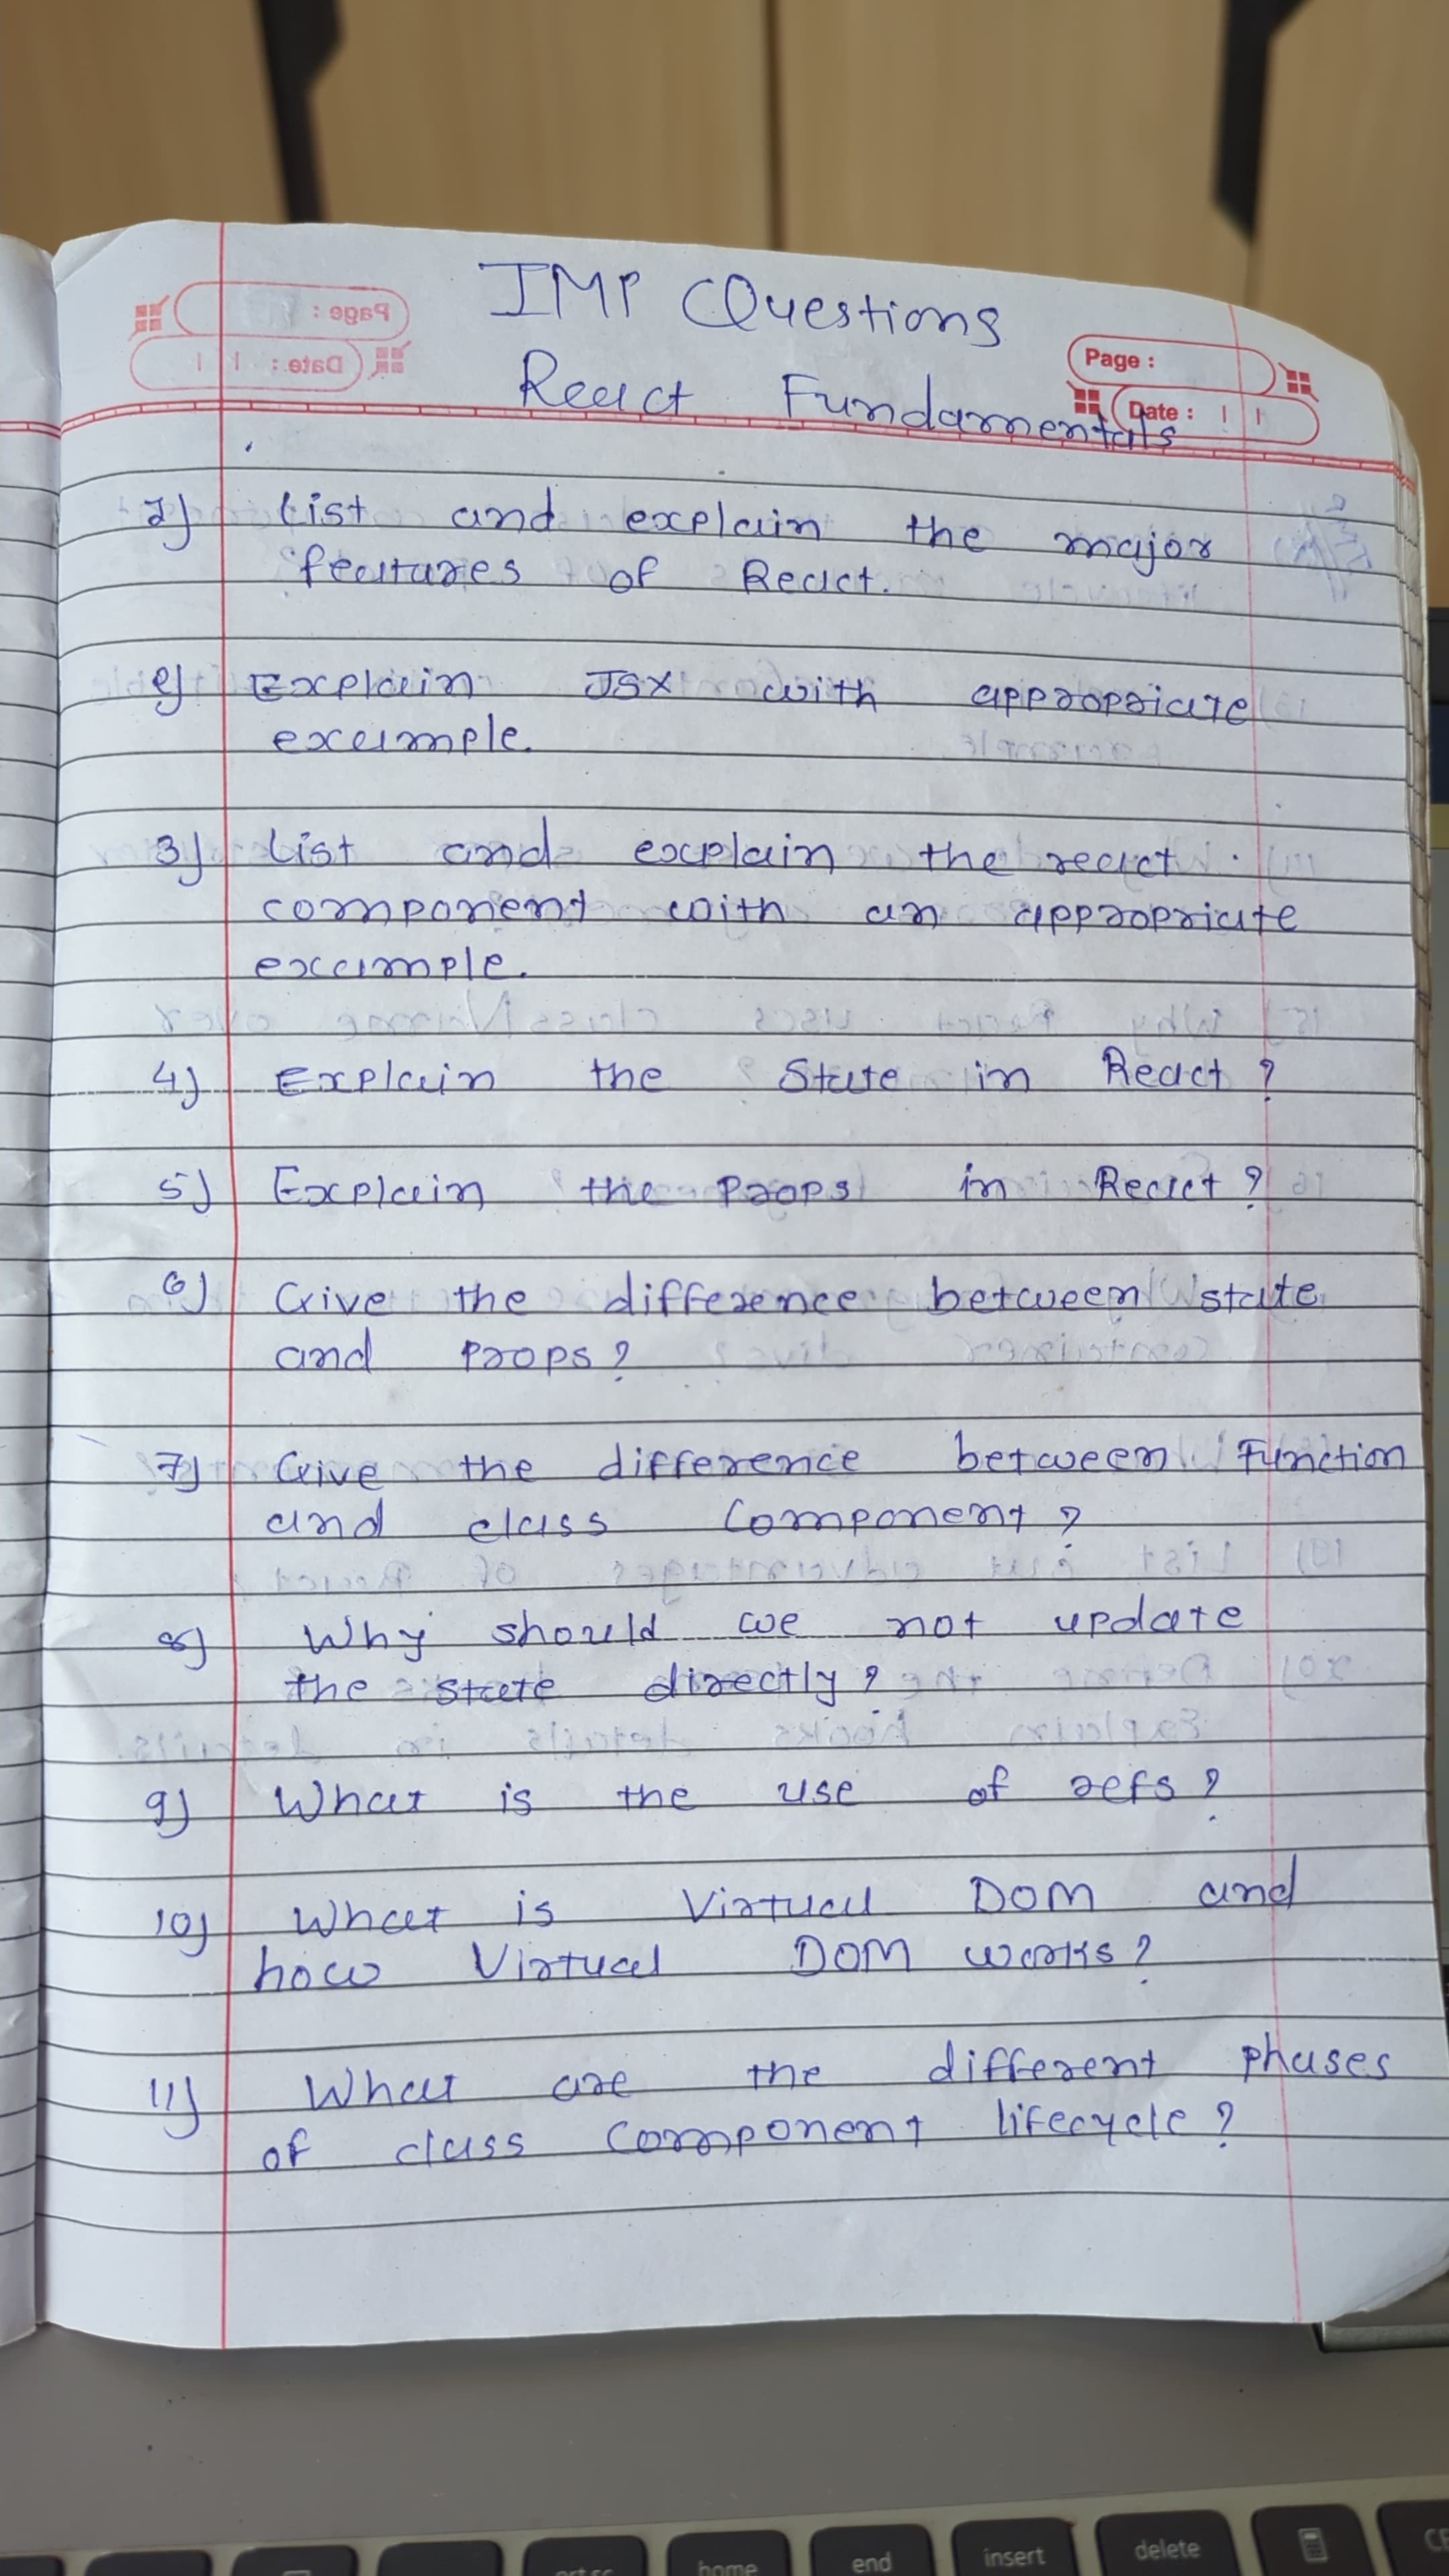 IMP Questions
Page :
React Fundamentals
Date :
1) List and explain the major
features of React.
2) Explain JSX with appropriate
example.
3) List and explain the react
component with an appropriate
example.
4) Explain the State in React ?
5) Explain the Props in React ?
6) Give the difference between state
and Props ?
7) Give the difference between Function
and class Component ?
8) Why should we not update
the state directly ?
9) What is the use of refs ?
10) What is Virtual DOM and
how Virtual DOM works ?
11) What are the different phases
of class Component lifecycle ?
home
end
insert
delete